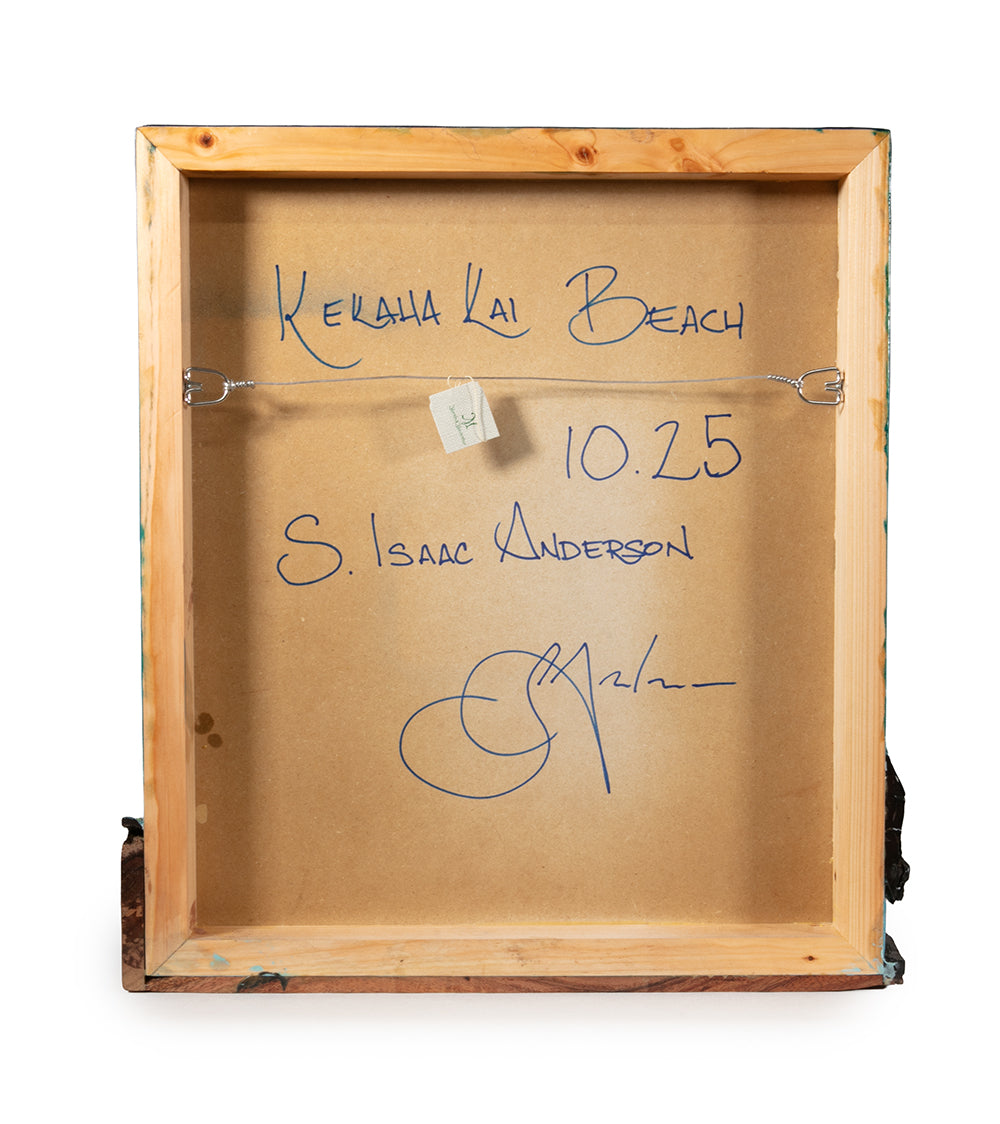 Kekaha Kai Beach
10.25
S. Isaac Anderson